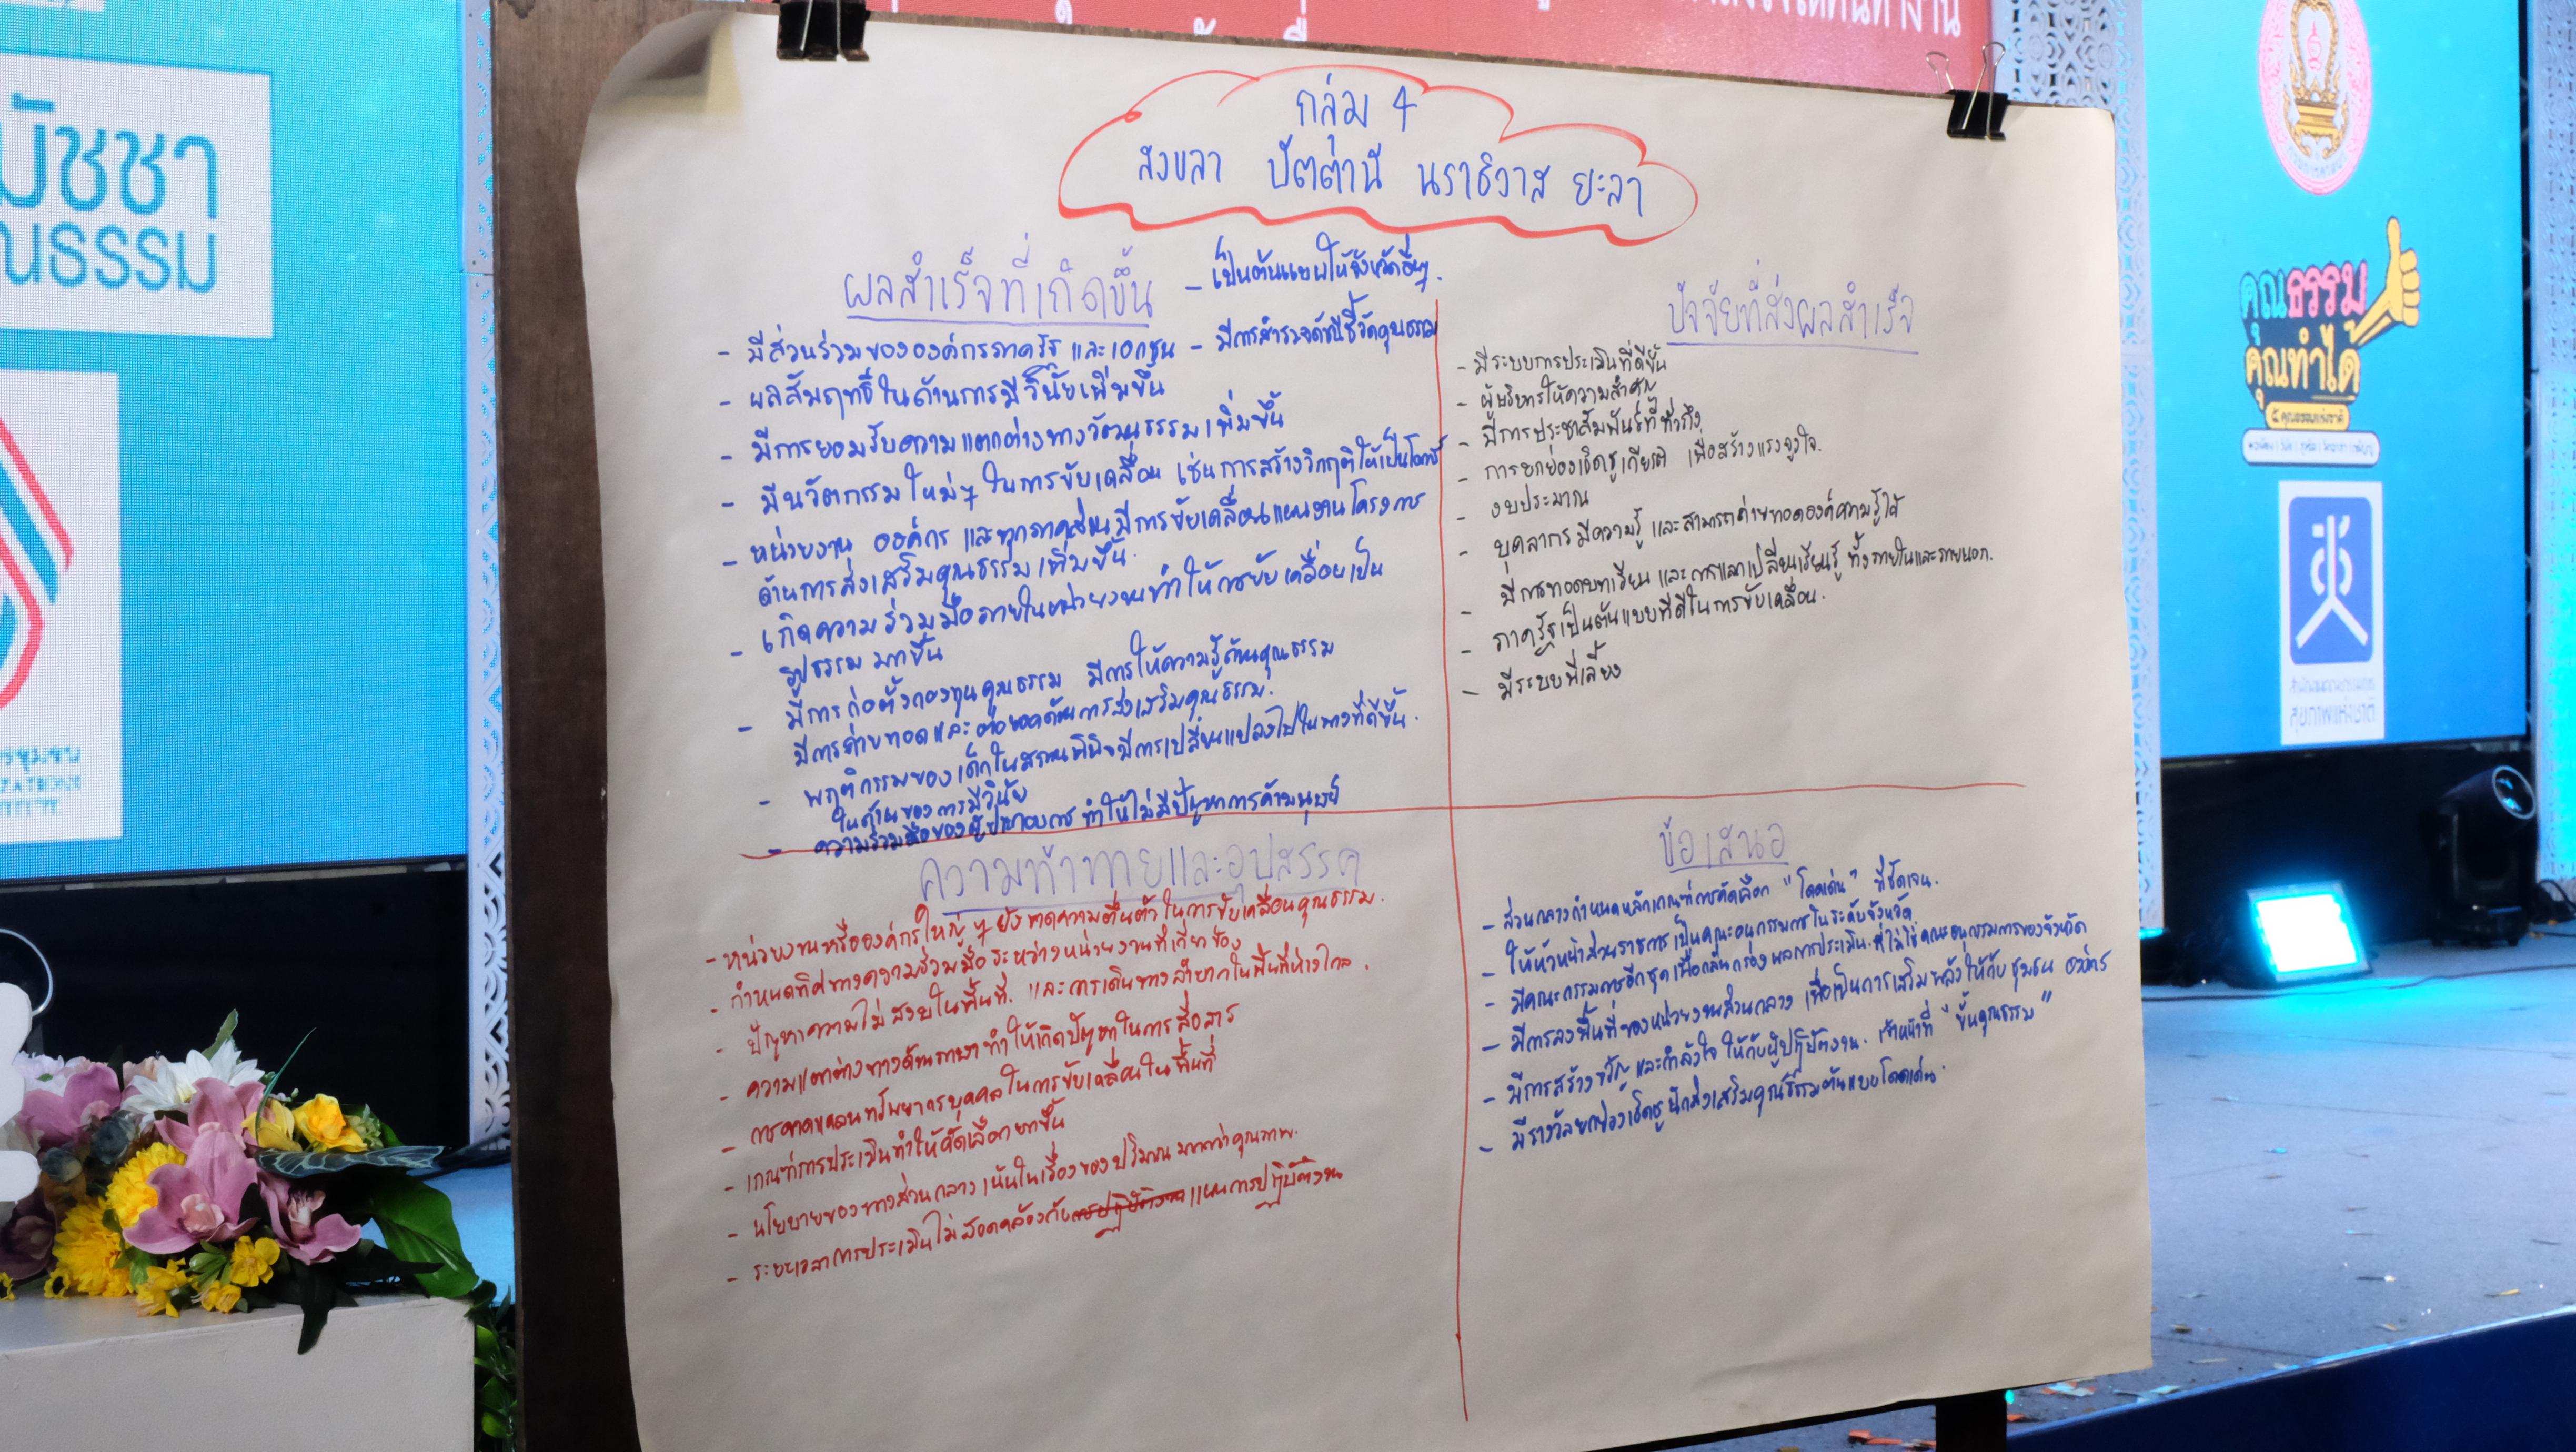 กลุ่ม 4
สงขลา ปัตตานี นราธิวาส ยะลา
ผลสำเร็จที่เกิดขึ้น
- เป็นต้นแบบให้จังหวัดอื่นๆ.
- มีส่วนร่วมขององค์กรภาครัฐ และเอกชน - มีการสำรวจดัชนีชี้วัดคุณธรรม
- ผลสัมฤทธิ์ในด้านการมีวินัยเพิ่มขึ้น
- มีการยอมรับความแตกต่างทางวัฒนธรรมเพิ่มขึ้น
- มีนวัตกรรมใหม่ๆ ในการขับเคลื่อน เช่นการสร้างวิกฤติให้เป็นโอกาส
- หน่วยงาน องค์กร และทุกภาคส่วนมีการขับเคลื่อนแผนงานโครงการ
ด้านการส่งเสริมคุณธรรมเพิ่มขึ้น.
- เกิดความร่วมมือภายในหน่วยงานทำให้การขับเคลื่อนเป็น
รูปธรรมมากขึ้น
- มีการก่อตั้งกองทุนคุณธรรม มีการให้ความรู้ด้านคุณธรรม
มีการถ่ายทอดและต่อยอดด้านการส่งเสริมคุณธรรม.
- พฤติกรรมของเด็กในสถานพินิจมีการเปลี่ยนแปลงไปในทางที่ดีขึ้น.
ในด้านของการมีวินัย
- ความร่วมมือของผู้ประกอบการ ทำให้ไม่มีปัญหาการค้ามนุษย์
ปัจจัยที่ส่งผลสำเร็จ
- มีระบบการประเมินที่ดีขึ้น
- ผู้บริหารให้ความสำคัญ
- มีการประชาสัมพันธ์ที่ทั่วถึง
- การยกย่องเชิดชูเกียรติ เพื่อสร้างแรงจูงใจ.
- งบประมาณ
- บุคลากรมีความรู้ และสามารถถ่ายทอดองค์ความรู้ได้
- มีการถอดบทเรียน และการแลกเปลี่ยนเรียนรู้ ทั้งภายในและภายนอก.
- ภาครัฐเป็นต้นแบบที่ดีในการขับเคลื่อน.
- มีระบบพี่เลี้ยง
ความท้าทายและอุปสรรค
- หน่วยงานหรือองค์กรใหญ่ๆ ยังขาดความตื่นตัวในการขับเคลื่อนคุณธรรม.
- กำหนดทิศทางความร่วมมือระหว่างหน่วยงานที่เกี่ยวข้อง
- ปัญหาความไม่สงบในพื้นที่. และการเดินทางลำบากในพื้นที่ห่างไกล.
- ความแตกต่างทางด้านภาษาทำให้เกิดปัญหาในการสื่อสาร
- การขาดแคลนทรัพยากรบุคคลในการขับเคลื่อนในพื้นที่
- เกณฑ์การประเมินทำให้คัดเลือกยากขึ้น
- นโยบายของทางส่วนกลางเน้นในเรื่องของปริมาณมากกว่าคุณภาพ.
- ระยะเวลาการประเมินไม่สอดคล้องกับการปฏิบัติงานแผนการปฏิบัติงาน
ข้อเสนอ
- ส่วนกลางกำหนดหลักเกณฑ์การคัดเลือก "โดดเด่น" ที่ชัดเจน.
- ให้หัวหน้าส่วนราชการเป็นคณะอนุกรรมการในระดับจังหวัด.
- มีคณะกรรมการอีกชุดเพื่อกลั่นกรองผลการประเมิน.ที่ไม่ใช่คณะอนุกรรมการของจังหวัด
- มีการลงพื้นที่ของหน่วยงานส่วนกลาง เพื่อเป็นการเสริมพลังให้กับชุมชน องค์กร
- มีการสร้างขวัญและกำลังใจ ให้กับผู้ปฏิบัติงาน. เจ้าหน้าที่ "ขั้นคุณธรรม"
- มีรางวัลยกย่องเชิดชูนักส่งเสริมคุณธรรมต้นแบบโดดเด่น.
คุณธรรม
คุณทำได้
สุขภาพแห่งชาติ